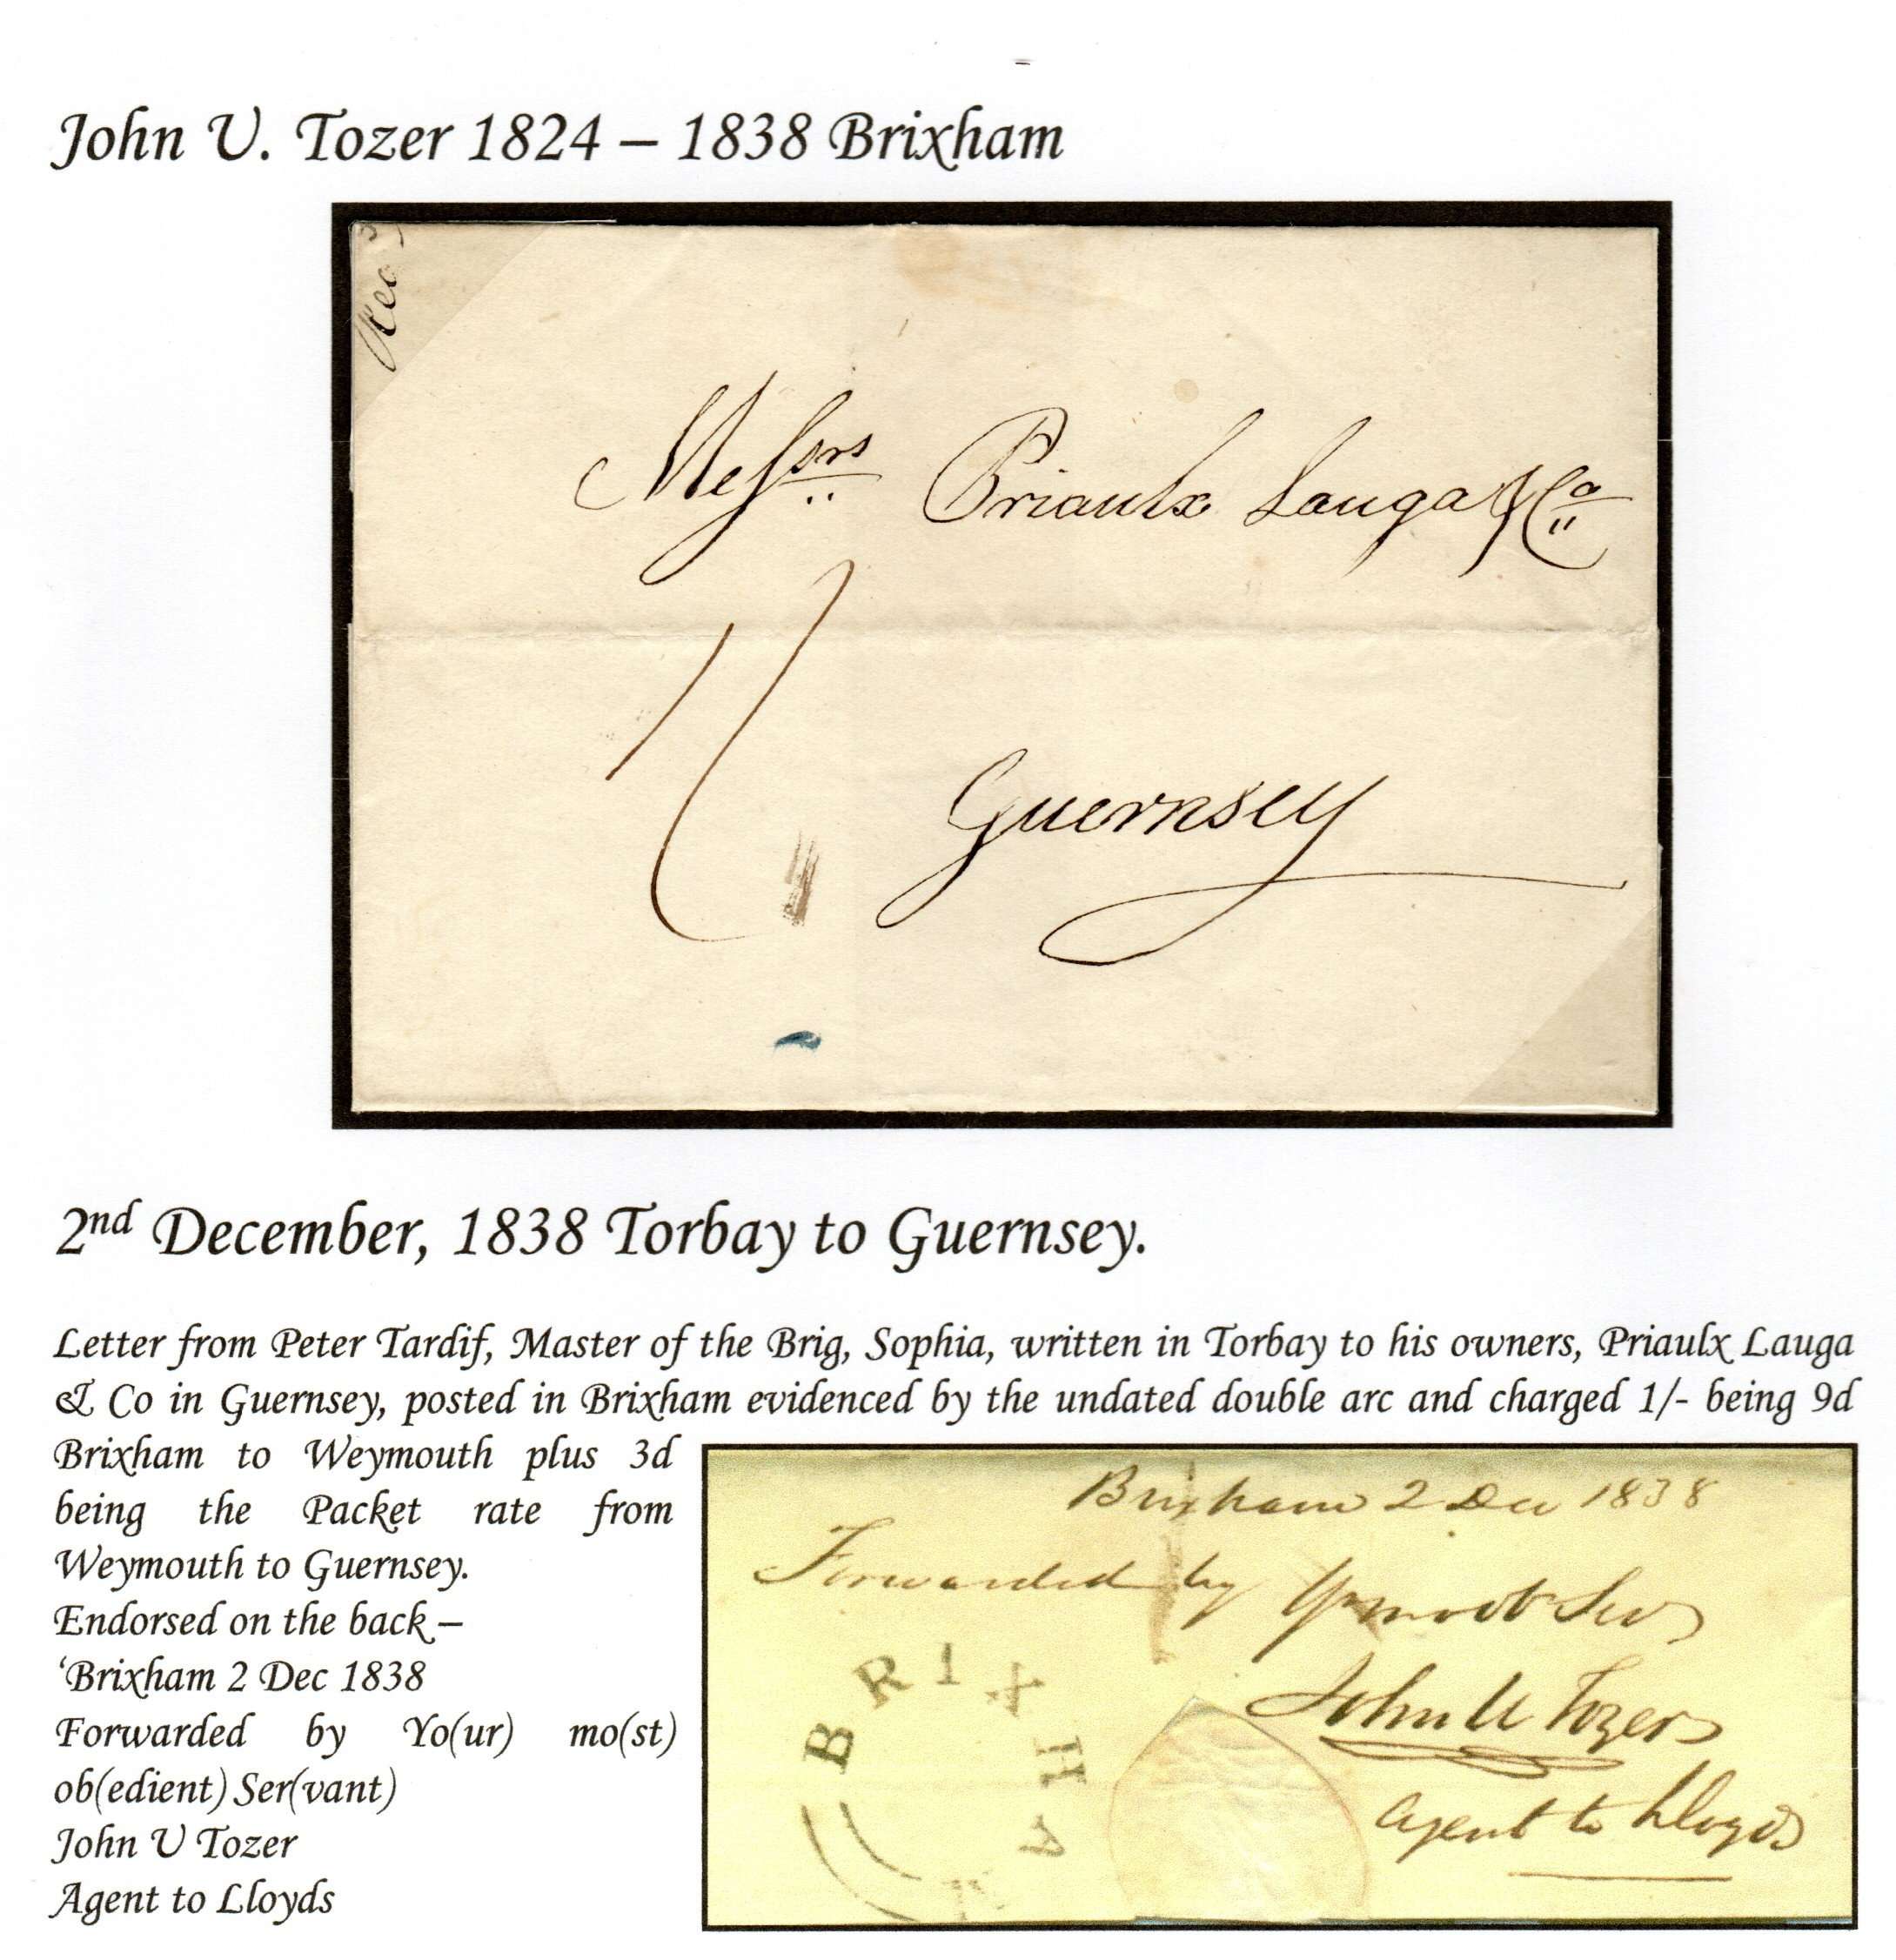 John U. Tozer 1824 – 1838 Brixham
Messrs Priaulx Lauga & Co
1/
Guernsey
2nd December, 1838 Torbay to Guernsey.
Letter from Peter Tardif, Master of the Brig, Sophia, written in Torbay to his owners, Priaulx Lauga
& Co in Guernsey, posted in Brixham evidenced by the undated double arc and charged 1/- being 9d
Brixham to Weymouth plus 3d
being the Packet rate from
Weymouth to Guernsey.
Endorsed on the back –
‘Brixham 2 Dec 1838
Forwarded by Yo(ur) mo(st)
ob(edient) Ser(vant)
John U Tozer
Agent to Lloyds
Brixham 2 Dec 1838
Forwarded by Yr most ob Serv
John U Tozer
Agent to Lloyds
BRIXHAM